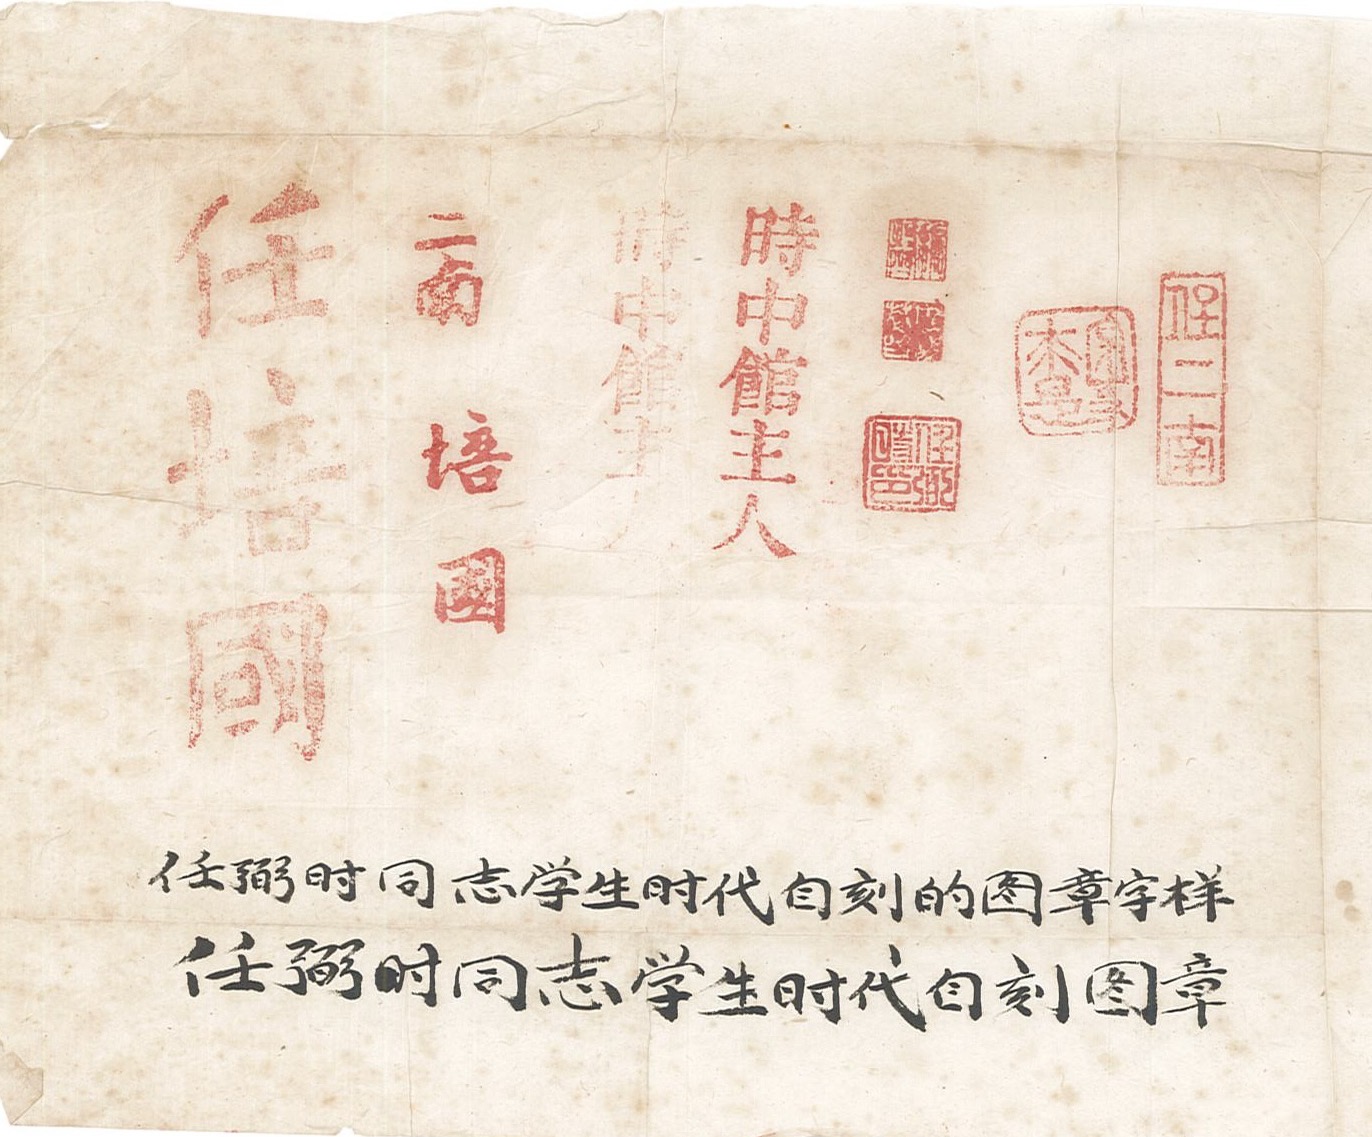 任二南
時中館主人
時中館主人
二南
培國
任培國
任弼时同志学生时代自刻的图章字样
任弼时同志学生时代自刻图章